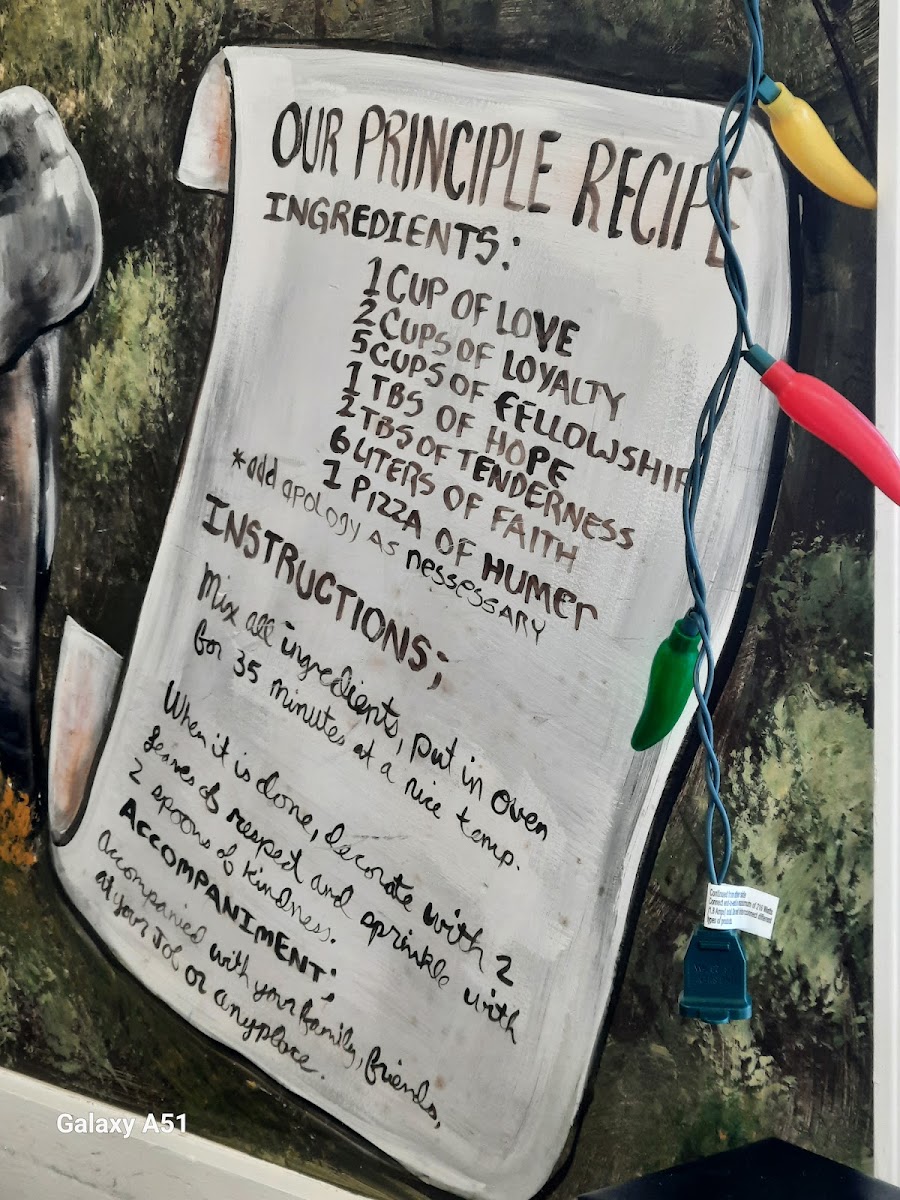 OUR PRINCIPLE RECIPE
INGREDIENTS:
1 CUP OF LOVE
2 CUPS OF LOYALTY
5 CUPS OF FELLOWSHIP
1 TBS OF HOPE
2 TBS OF TENDERNESS
6 LITERS OF FAITH
1 PIZZA OF HUMER
*add apology AS nessessary
INSTRUCTIONS;
Mix all ingredients, put in oven
for 35 minutes at a nice temp.
When it is done, decorate with 2
leaves of respect and sprinkle with
2 spoons of kindness.
ACCOMPANIMENT;
accompanied with your family, friends,
at your Job or anyplace.
Galaxy A51